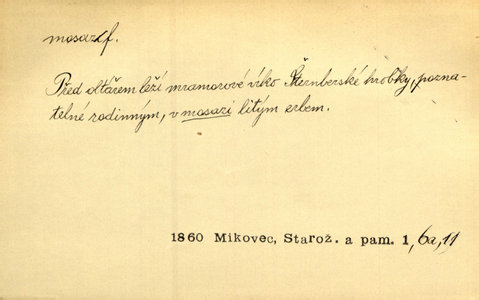 mosaz f.
Před oltářem leží mramorové víko Šternberské hrobky, pozna-
telné rodinným, v mosazi litým erbem.
1860 Mikovec, Starož. a pam. 1, 6a, 11